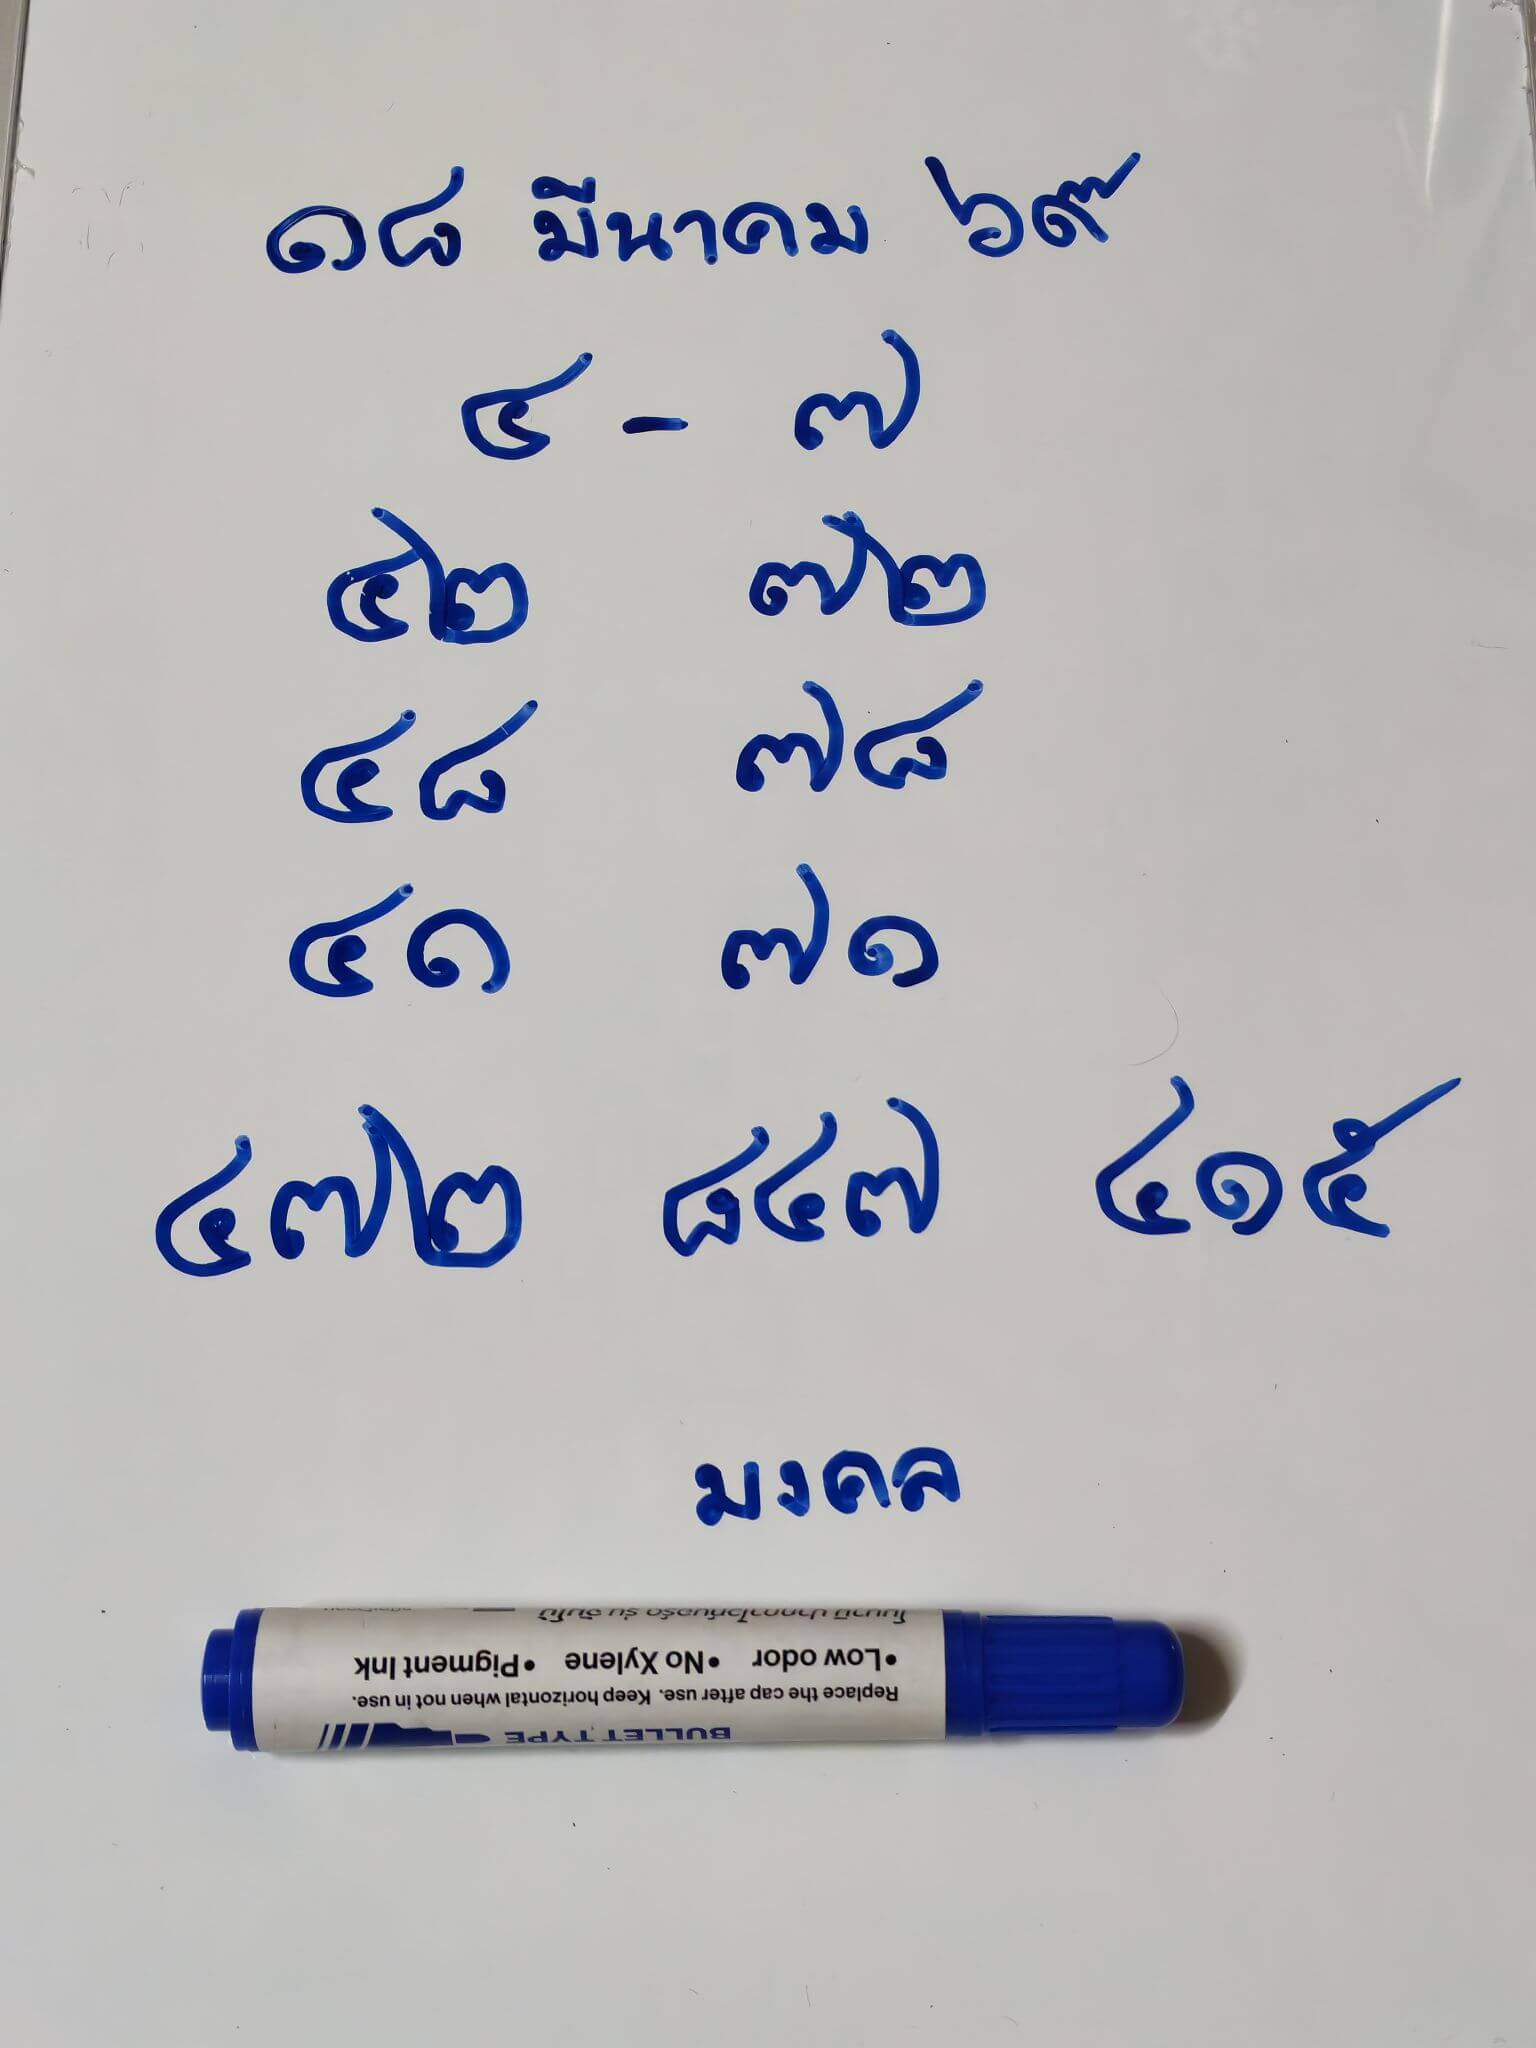 ๑๘ มีนาคม ๖๙
๔ - ๗
๔๒ ๗๒
๔๘ ๗๘
๔๑ ๗๑
๔๗๒ ๘๔๗ ๔๑๕
มงคล
BULLET TYPE
Replace the cap after use. Keep horizontal when not in use.
•Low odor •No Xylene •Pigment Ink